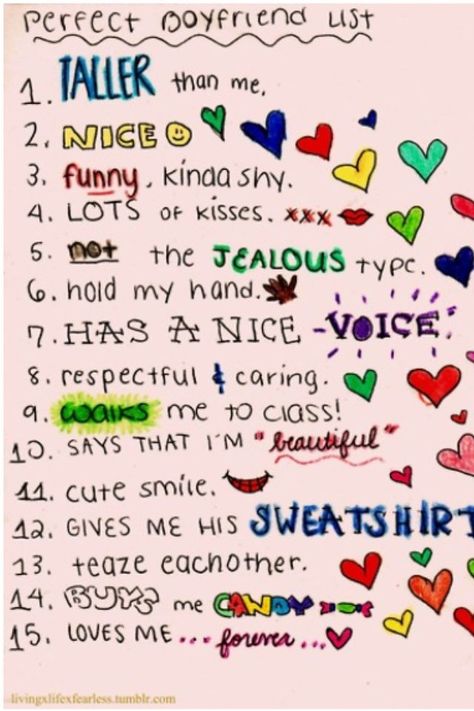 Perfect Boyfriend List
1. TALLER than me.
2. NICE
3. funny, kinda shy.
4. LOTS OF kisses. xxx
5. not the JEALOUS type.
6. hold my hand.
7. HAS A NICE -VOICE-
8. respectful & caring.
9. walks me to class!
10. SAYS THAT I'M "beautiful"
11. cute smile.
12. GIVES ME HIS SWEATSHIRT
13. teaze eachother.
14. BUYS me CANDY
15. LOVES ME... forever...
livingxlifexfearless.tumblr.com